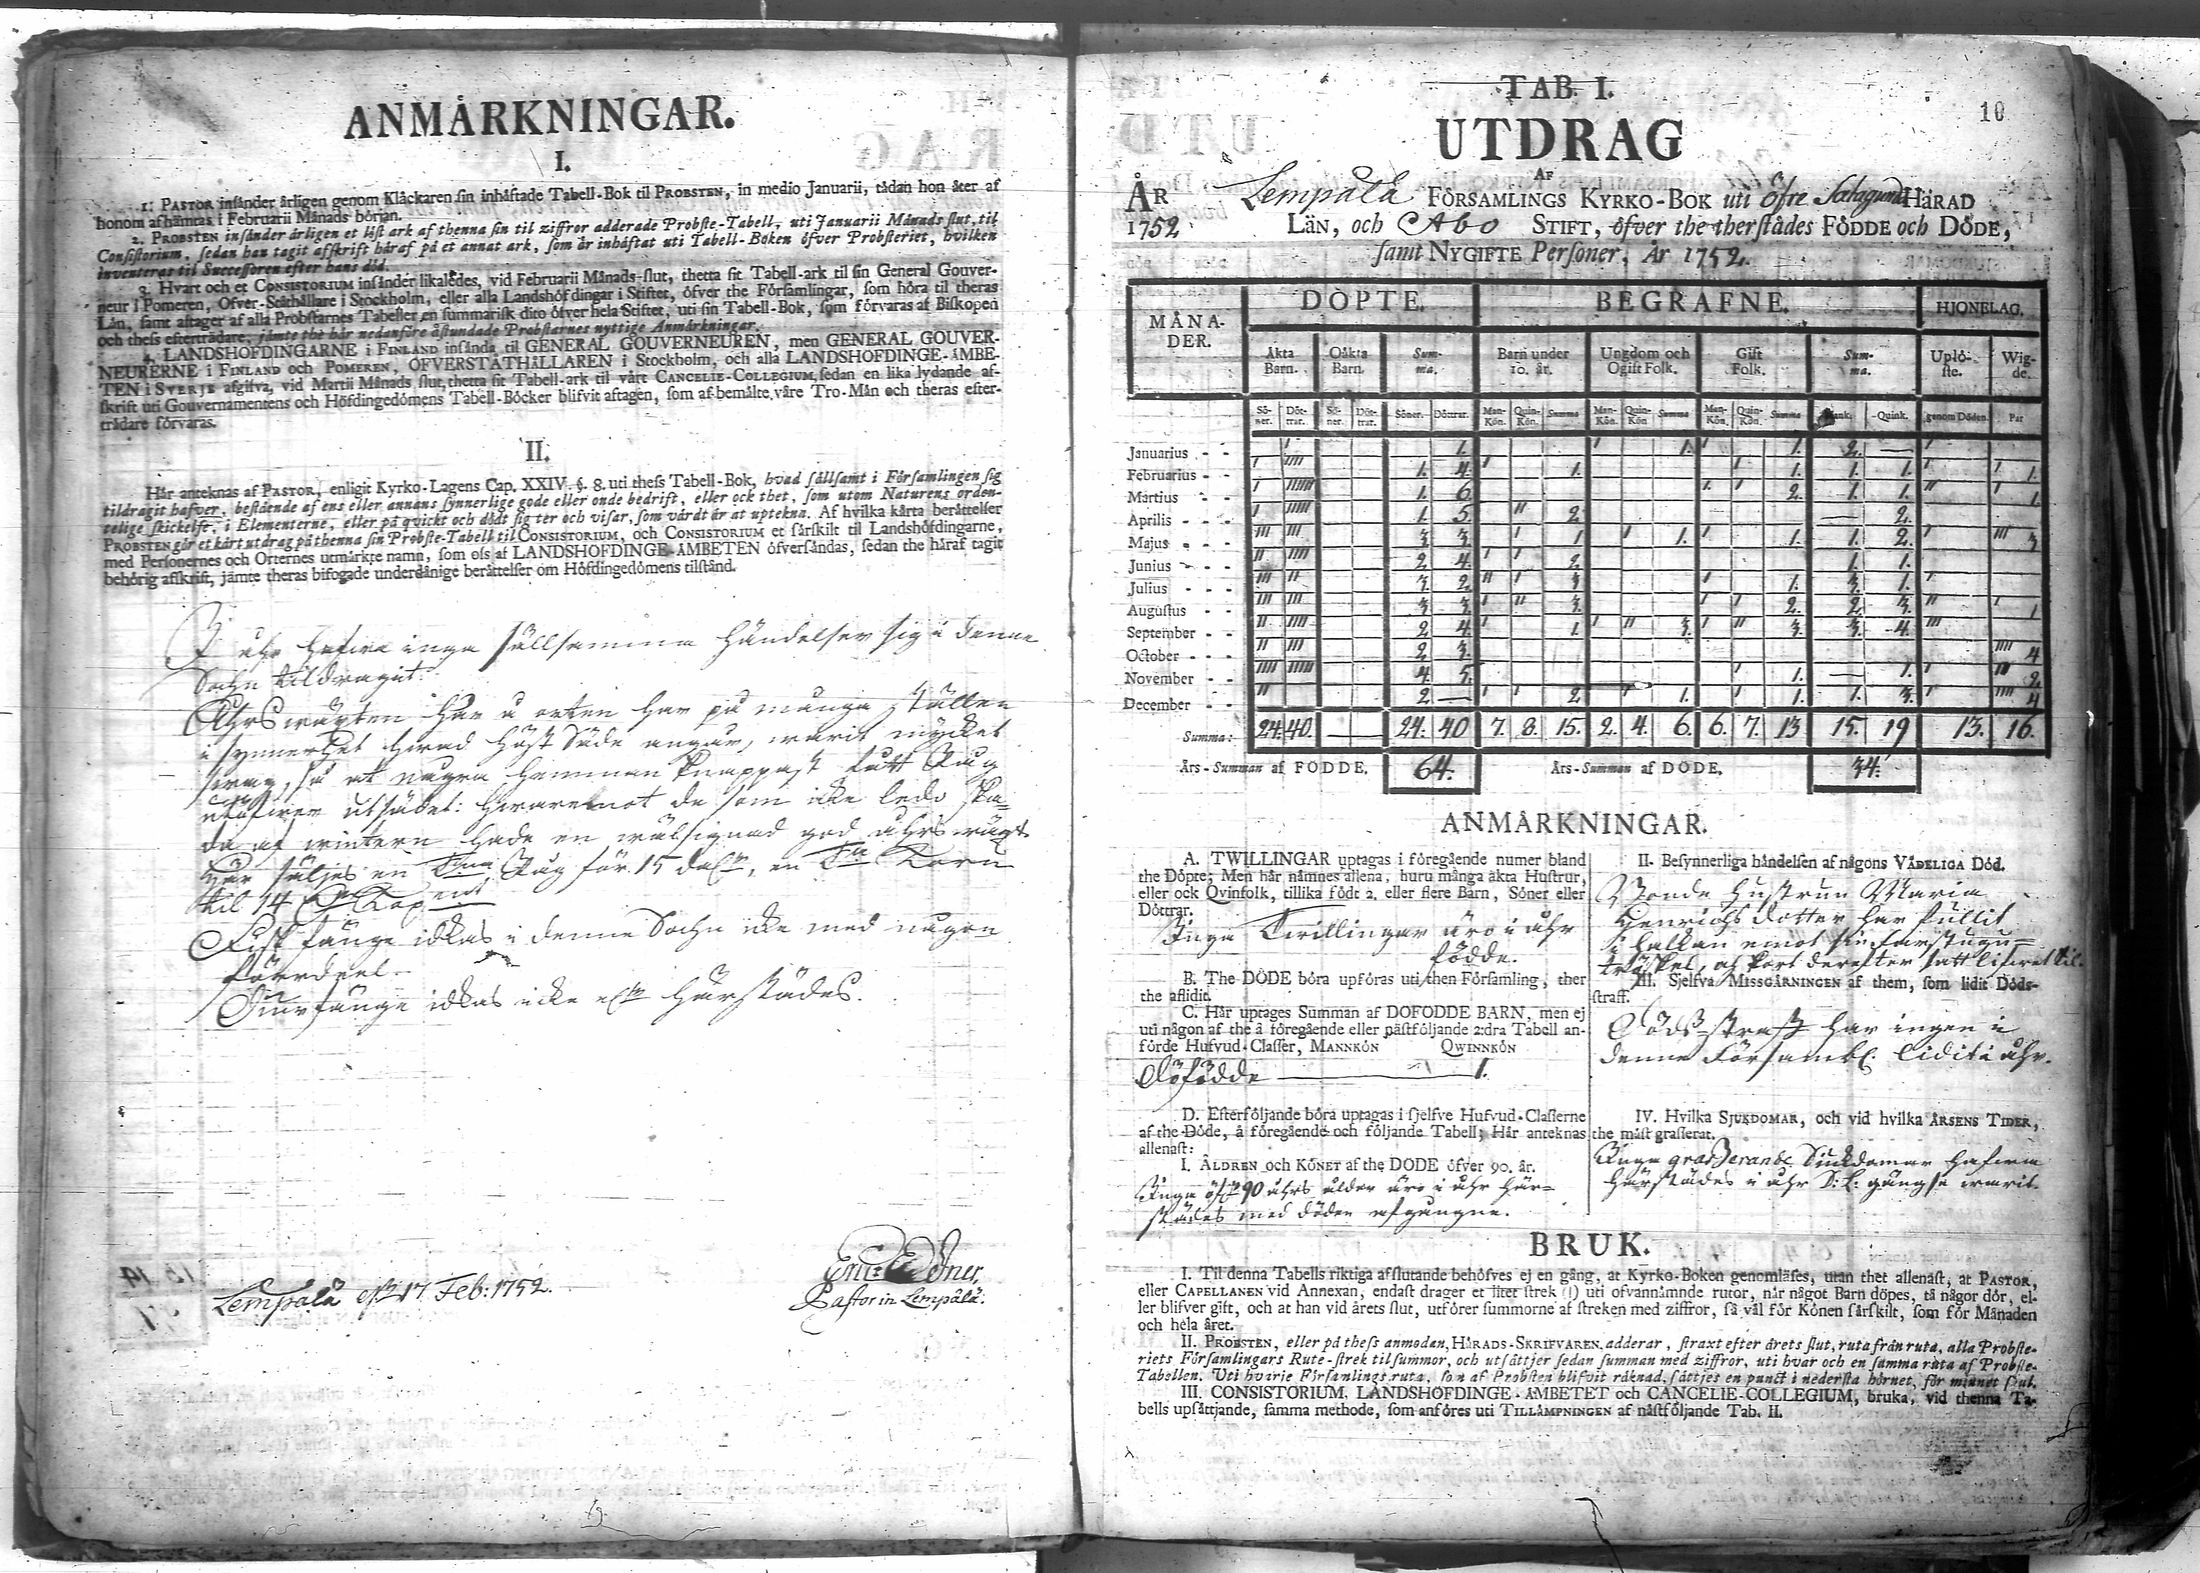 ANMÄRKNINGAR.
I.
1. PASTOR insänder årligen genom Klåckaren sin inhäftade Tabell-Bok til PROBSTEN, in medio Januarii, tådan hon åter af
honom afhämtas i Februarii Månads början.
2. PROBSTEN insänder årligen et löst ark af thenna sin til ziffror adderade Probste-Tabell, uti Januarii Månads slut, til
Consistorium, sedan han tagit affskrift häraf på et annat ark, som är inhäftat uti Tabell-Boken öfver Probsteriet, hvilken
inventeras til Successoren efter hans död.
3. Hvart och et CONSISTORIUM insänder likaledes, vid Februarii Månads-slut, thetta sit Tabell-ark til sin General Gouver-
neur i Pomeren, Öfver-Ståthållare i Stockholm, eller alla Landshöfdingar i Stiftet, öfver the Församlingar, som höra til theras
Län, samt aftager af alla Probstarnes Tabeller en summarisk dito öfver hela Stiftet, uti sin Tabell-Bok, som förvaras af Biskopen
och thess efterträdare, jämte the här nedanföre åstundade Probstarnes nyttige Anmärkningar.
4. LANDSHÖFDINGARNE i FINLAND insända til GENERAL GOUVERNEUREN, men GENERAL GOUVER-
NEURERNE i FINLAND och POMEREN, ÖFVERSTÅTHÅLLAREN i Stockholm, och alla LANDSHÖFDINGE-ÄMBE-
TEN i SVERJE afgifva, vid Martii Månads slut, thetta sit Tabell-ark til vårt CANCELIE-COLLEGIUM, sedan en lika lydande af-
skrift uti Gouvernamentens och Höfdingedömens Tabell-Böcker blifvit aftagen, som af bemälte våre Tro-Män och theras efter-
trädare förvaras.
II.
Här anteknas af PASTOR, enligit Kyrko-Lagens Cap. XXIV. §. 8. uti thess Tabell-Bok, hvad sällsamt i Församlingen sig
tildragit hafver, bestående af ens eller annans synnerlige gode eller onde bedrift, eller ock thet, som utom Naturens orden-
telige skickelse, i Elementerne, eller på qvickt och dödt sig ter och visar, som värdt är at uptekna. Af hvilka kårta berättelser
PROBSTEN gör et kårt utdrag på thenna sin Probste-Tabell til CONSISTORIUM, och CONSISTORIUM et särskilt til Landshöfdingarne,
med Personernes och Orternes utmärkte namn, som oss af LANDSHÖFDINGE-ÄMBETEN öfversändas, sedan the häraf tagit
behörig affkrift, jämte theras bifogade underdånige berättelser om Höfdingedömens tilstånd.
I åhr hafwa inga sällsamma händelser sig i denne
Sochn tildragit.
Åhrswäxten här å orten har på många ställen
i synnerhet hwad Höst Säde angår, warit mycket
swag, så at några hemman knappast fått Råg
utöfwer utsädet: hwaremot de som icke ledo ska-
da af wintern hade en wälsignad god åhrswäxt.
här säljes en Råg för 15 en Korn
til 14
Fisk fänge idkas i denne Sochn icke med någon
fördeel.
Diurfänge idkas icke häller härstädes.
Lempälä 17 Feb: 1752.
Pastor in Lempälä.
TAB. I.
10
UTDRAG
AF
ÅR Lempälä FÖRSAMLINGS KYRKO-BOK uti öfre Satagunda HÄRAD
1752 LÄN, och Åbo STIFT, öfver the therstädes FÖDDE och DÖDE,
samt NYGIFTE Personer, År 1752.
MÅNA-DER. DÖPTE. BEGRAFNE. HJONELAG.
Äkta Barn. Oäkta Barn. Sum-ma. Barn under 10. år. Ungdom och Ogift Folk. Gift Folk. Sum-ma. Uplö-ste. Wig-de.
Sö-ner. Döt-trar. Sö-ner. Döt-trar. Söner. Döttrar. Man-Kön. Quin-Kön. Summa Man-Kön. Quin-Kön Summa Man-Kön. Quin-Kön. Summa Mank. Quink. genom Döden. Par
Januarius - - 1. 1. 1. 2. —
Februarius - - 1. 4. 1. 1. 1. 1. 1.
Martius - - - 1. 6. 2. 1. 1. 1.
Aprilis - - - 1. 5. 2 — 2.
Majus - - - 3 3. 1 1. 1. 1. 2. 3
Junius - - - 2 4. 2 1. 1.
Julius - - - 3 2. 3 1. 3. 1.
Augustus - - - 3 3. 3. 2. 2. 3. 1
September - - 2 4. 1. 3. 3. 3. 4.
October - - - 2 3. 4
November - - 4. 5. 1. — 1. 2.
December - - 2 — 2 1. 1. 1. 3. 4
Summa: 24. 40. — 24. 40 7. 8. 15. 2. 4. 6. 6. 7. 13 15. 19 13. 16.
Års-Summan af FÖDDE. 64. Års-Summan af DÖDE. 34.
ANMÄRKNINGAR.
A. TWILLINGAR uptagas i föregående numer bland
the Döpte; Men här nämnes allena, huru många äkta Hustrur,
eller ock Qvinfolk, tillika födt 2. eller flere Barn, Söner eller
Döttrar.
Inga Twillingar äro i åhr
födde.
B. The DÖDE böra upföras uti then Församling, ther
the aflidit.
C. Här uptages Summan af DÖFÖDDE BARN, men ej
uti någon af the å föregående eller påstföljande 2:dra Tabell an-
förde Hufvud-Classer, MANNKÖN QWINNKÖN
Döfödde — 1.
D. Efterföljande böra uptagas i sjelfve Hufvud-Classerne
af the Döde, å föregående och följande Tabell; Här anteknas
allenast:
I. ÅLDREN och KÖNET af the DÖDE öfver 90. år.
Inga öfwer 90 åhrs ålder äro i åhr här-
städes med döden afgångne.
II. Besynnerliga händelsen af någons VÅDELIGA Död.
Bonde hustrun Maria
Henrichs dotter har fullit
i halkan emot sin farstugu-
tröskel, och kort derefter satt lifwet til.
III. Sjelfva MISSGÄRNINGEN af them, som lidit Döds-
straff.
Dödsstraff har ingen i
denne Försambl. lidit i åhr.
IV. Hvilka SJUKDOMAR, och vid hvilka ÅRSENS TIDER,
the mäst grasserat.
Inga grasserande Siukdomar hafwa
härstädes i åhr gångse warit.
BRUK.
I. Til denna Tabells riktiga afslutande behöfves ej en gång, at Kyrko-Boken genomläses, utan thet allenast, at PASTOR,
eller CAPELLANEN vid Annexan, endast drager et litet strek (|) uti ofvannämnde rutor, när något Barn döpes, tå någor dör, el-
ler blifver gift, och at han vid årets slut, utförer summorne af streken med ziffror, så väl för Könen särskilt, som för Månaden
och hela året.
II. PROBSTEN, eller på thess anmodan, HÄRADS-SKRIFVAREN, adderar, straxt efter årets slut, ruta från ruta, alla Probste-
riets Församlingars Rute-strek til summor, och utsättjer sedan summan med ziffror, uti hvar och en samma ruta af Probste-
Tabellen. Uti hvarje Församlings ruta, som af Probsten blifvit räknad, sättjes en punct i nedersta hörnet, för minnet skul.
III. CONSISTORIUM, LANDSHÖFDINGE-ÄMBETET och CANCELIE-COLLEGIUM, bruka, vid thenna Ta-
bells upsättjande, samma methode, som anföres uti TILLÄMPNINGEN af nästföljande Tab. II.